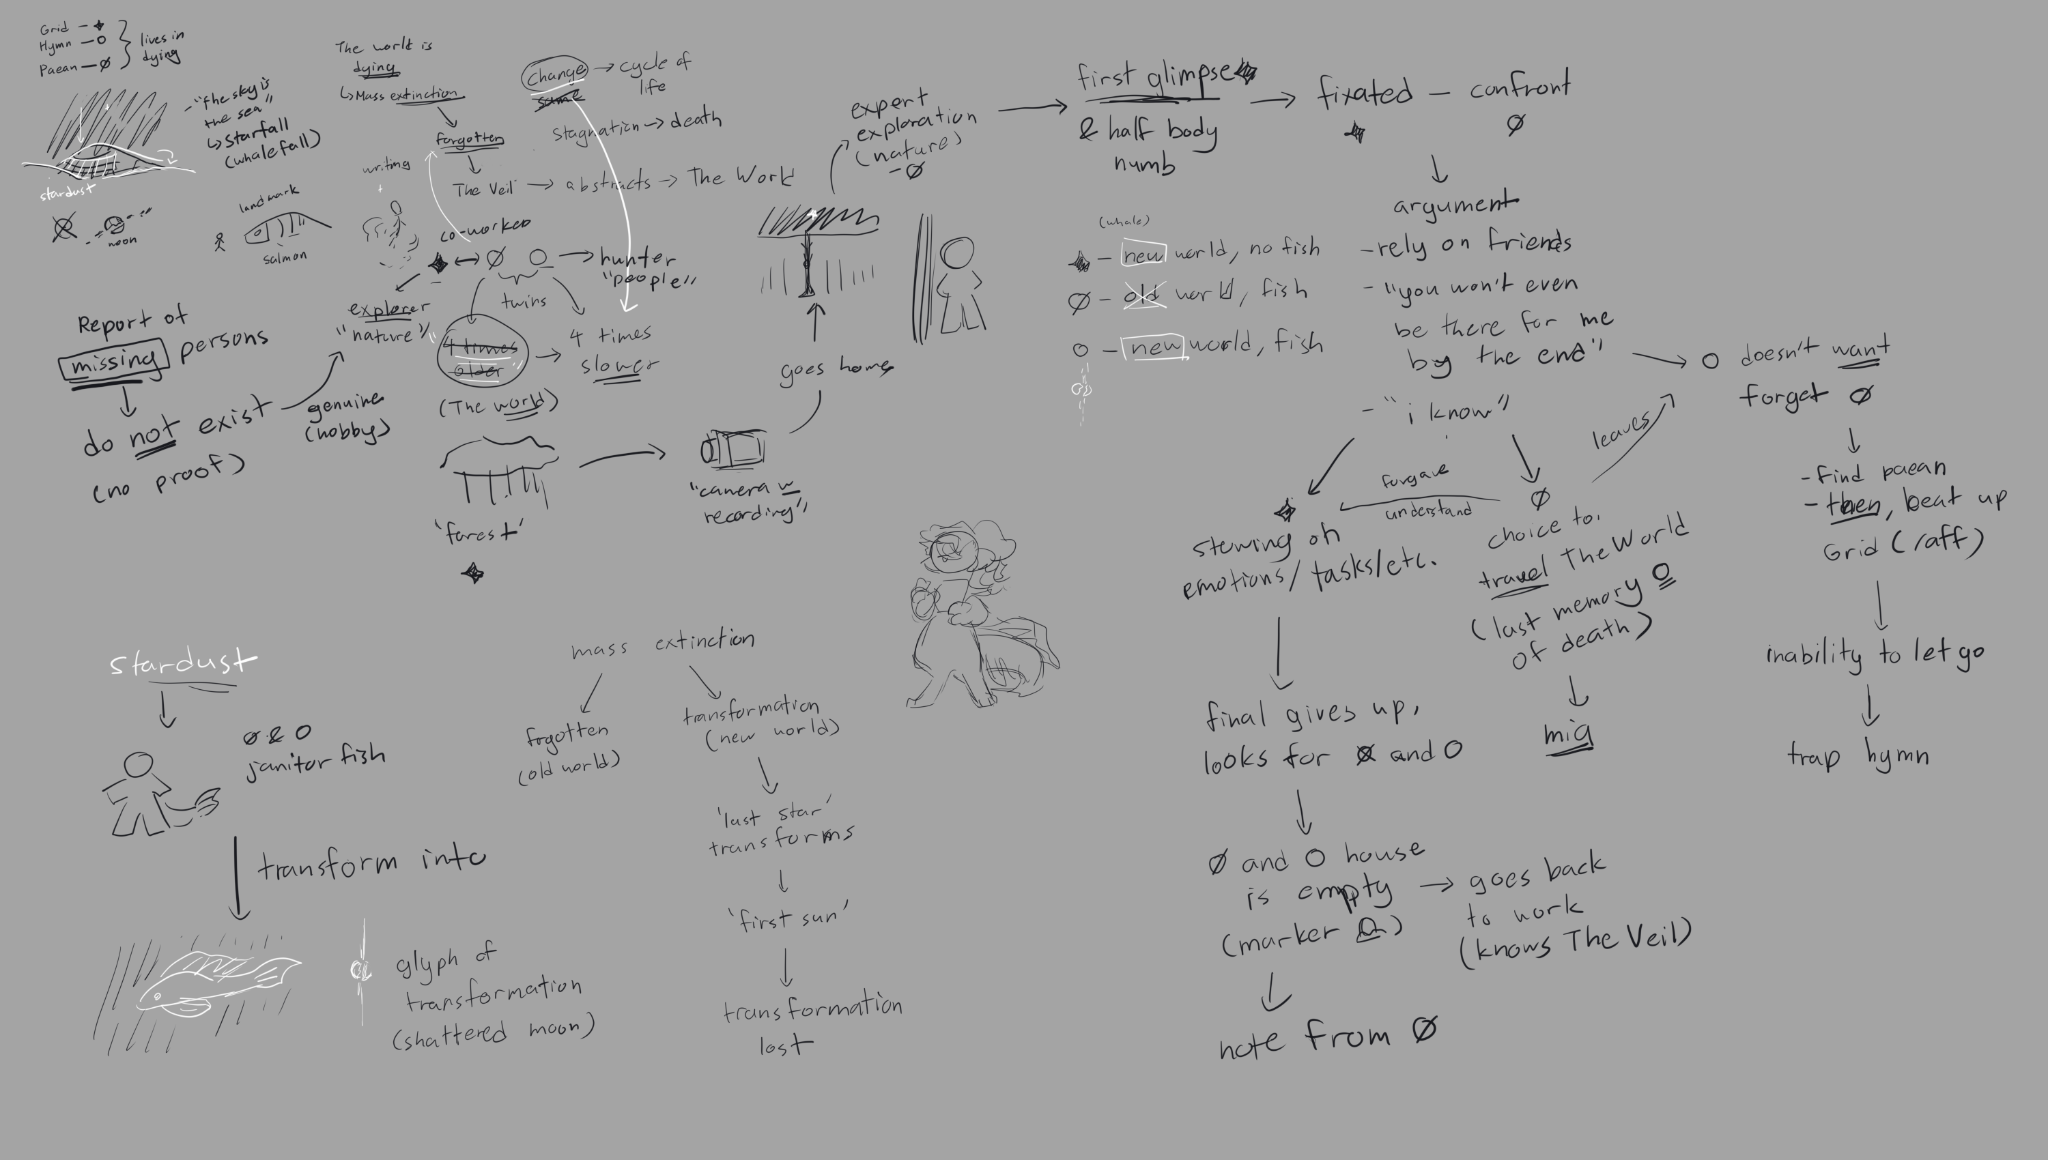 Grid - ✦
Hymn - O
Paean - Ø
lives in
dying
- "the sky is
the sea"
↳ starfall
(whalefall)
stardust
moon
landmark
salmon
The world is
dying
↳ Mass extinction
forgotten
The Veil → abstracts → The World
change → cycle of
life
same
stagnation → death
writing
co-worked
✦ ↔ Ø O → hunter
"people"
twins
explorer
"nature"
4 times
older
→ 4 times
slower
(The world)
Report of
missing persons
do not exist
(no proof)
genuine
(hobby)
'forest'
✦
"camera w
recording"
goes home
expert
exploration
(nature)
- Ø
first glimpse ✦
& half body
numb
→ fixated - confront
✦ Ø
(whale)
✦ - new world, no fish
Ø - old world, fish
O - new world, fish
argument
- rely on friends
- "you won't even
be there for me
by the end"
- "i know"
O doesn't want
forget Ø
leaves
- find paean
- then, beat up
Grid (/aff)
inability to let go
trap hymn
forgave
understand
✦
stewing on
emotions/tasks/etc.
Ø
choice to
travel The World
(last memory O
of death)
mia
final gives up,
looks for Ø and O
Ø and O house
is empty → goes back
to work
(marker)
(knows The Veil)
note from Ø
stardust
Ø & O
janitor fish
transform into
glyph of
transformation
(shattered moon)
mass extinction
fogotten
(old world)
transformation
(new world)
'last star'
transforms
'first sun'
transformation
lost